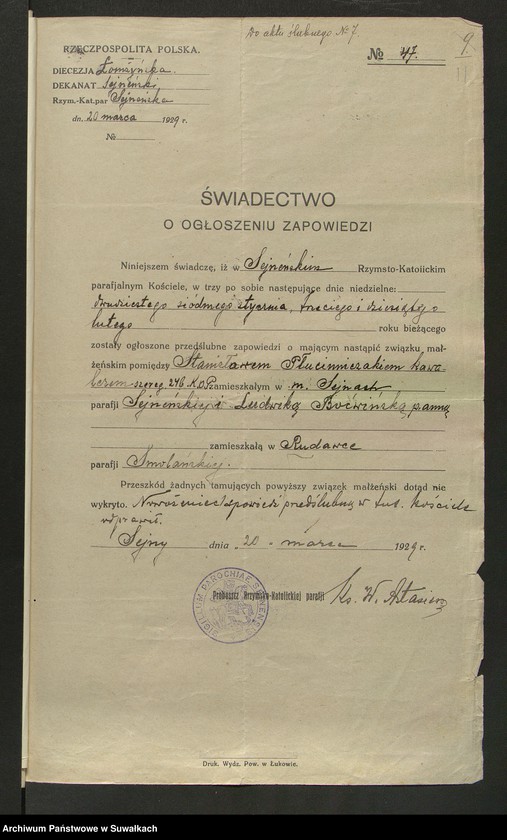 Do aktu ślubnego № 7.
9
RZECZPOSPOLITA POLSKA.
№ 47.
DIECEZJA Łomżyńska.
DEKANAT Sejneński
Rzym.-Kat.par Sejneńska
dn. 20 marca 1929 r.
№
ŚWIADECTWO
O OGŁOSZENIU ZAPOWIEDZI
Niniejszem świadczę, iż w Sejneńskim Rzymsto-Katolickim
parafjalnym Kościele, w trzy po sobie następujące dnie niedzielne:
dwudziestego siódmego stycznia, trzeciego i dziesiątego
lutego roku bieżącego
zostały ogłoszone przedślubne zapowiedzi o mającym nastąpić związku mał-
żeńskim pomiędzy Stanisławem Płuciniczakiem kawa-
lerem szereg. 24 b. K.O.P. zamieszkałym w m. Sejnach
parafji Sejneńskiej i Ludwiką Boćwińską panną
zamieszkałą w Rudawce
parafji Smolańskiej.
Przeszkód żadnych tamujących powyższy związek małżeński dotąd nie
wykryto. Nowożeniec spowiedź przedślubną w tut. kościele
odprawił.
Sejny dnia 20 marca 1929 r.
Proboszcz Rzymsko-Katolickiej parafji Ks. W.
SIGILLUM PAROCHIAE
Druk. Wydz. Pow. w Łukowie.
Archiwum Państwowe w Suwałkach